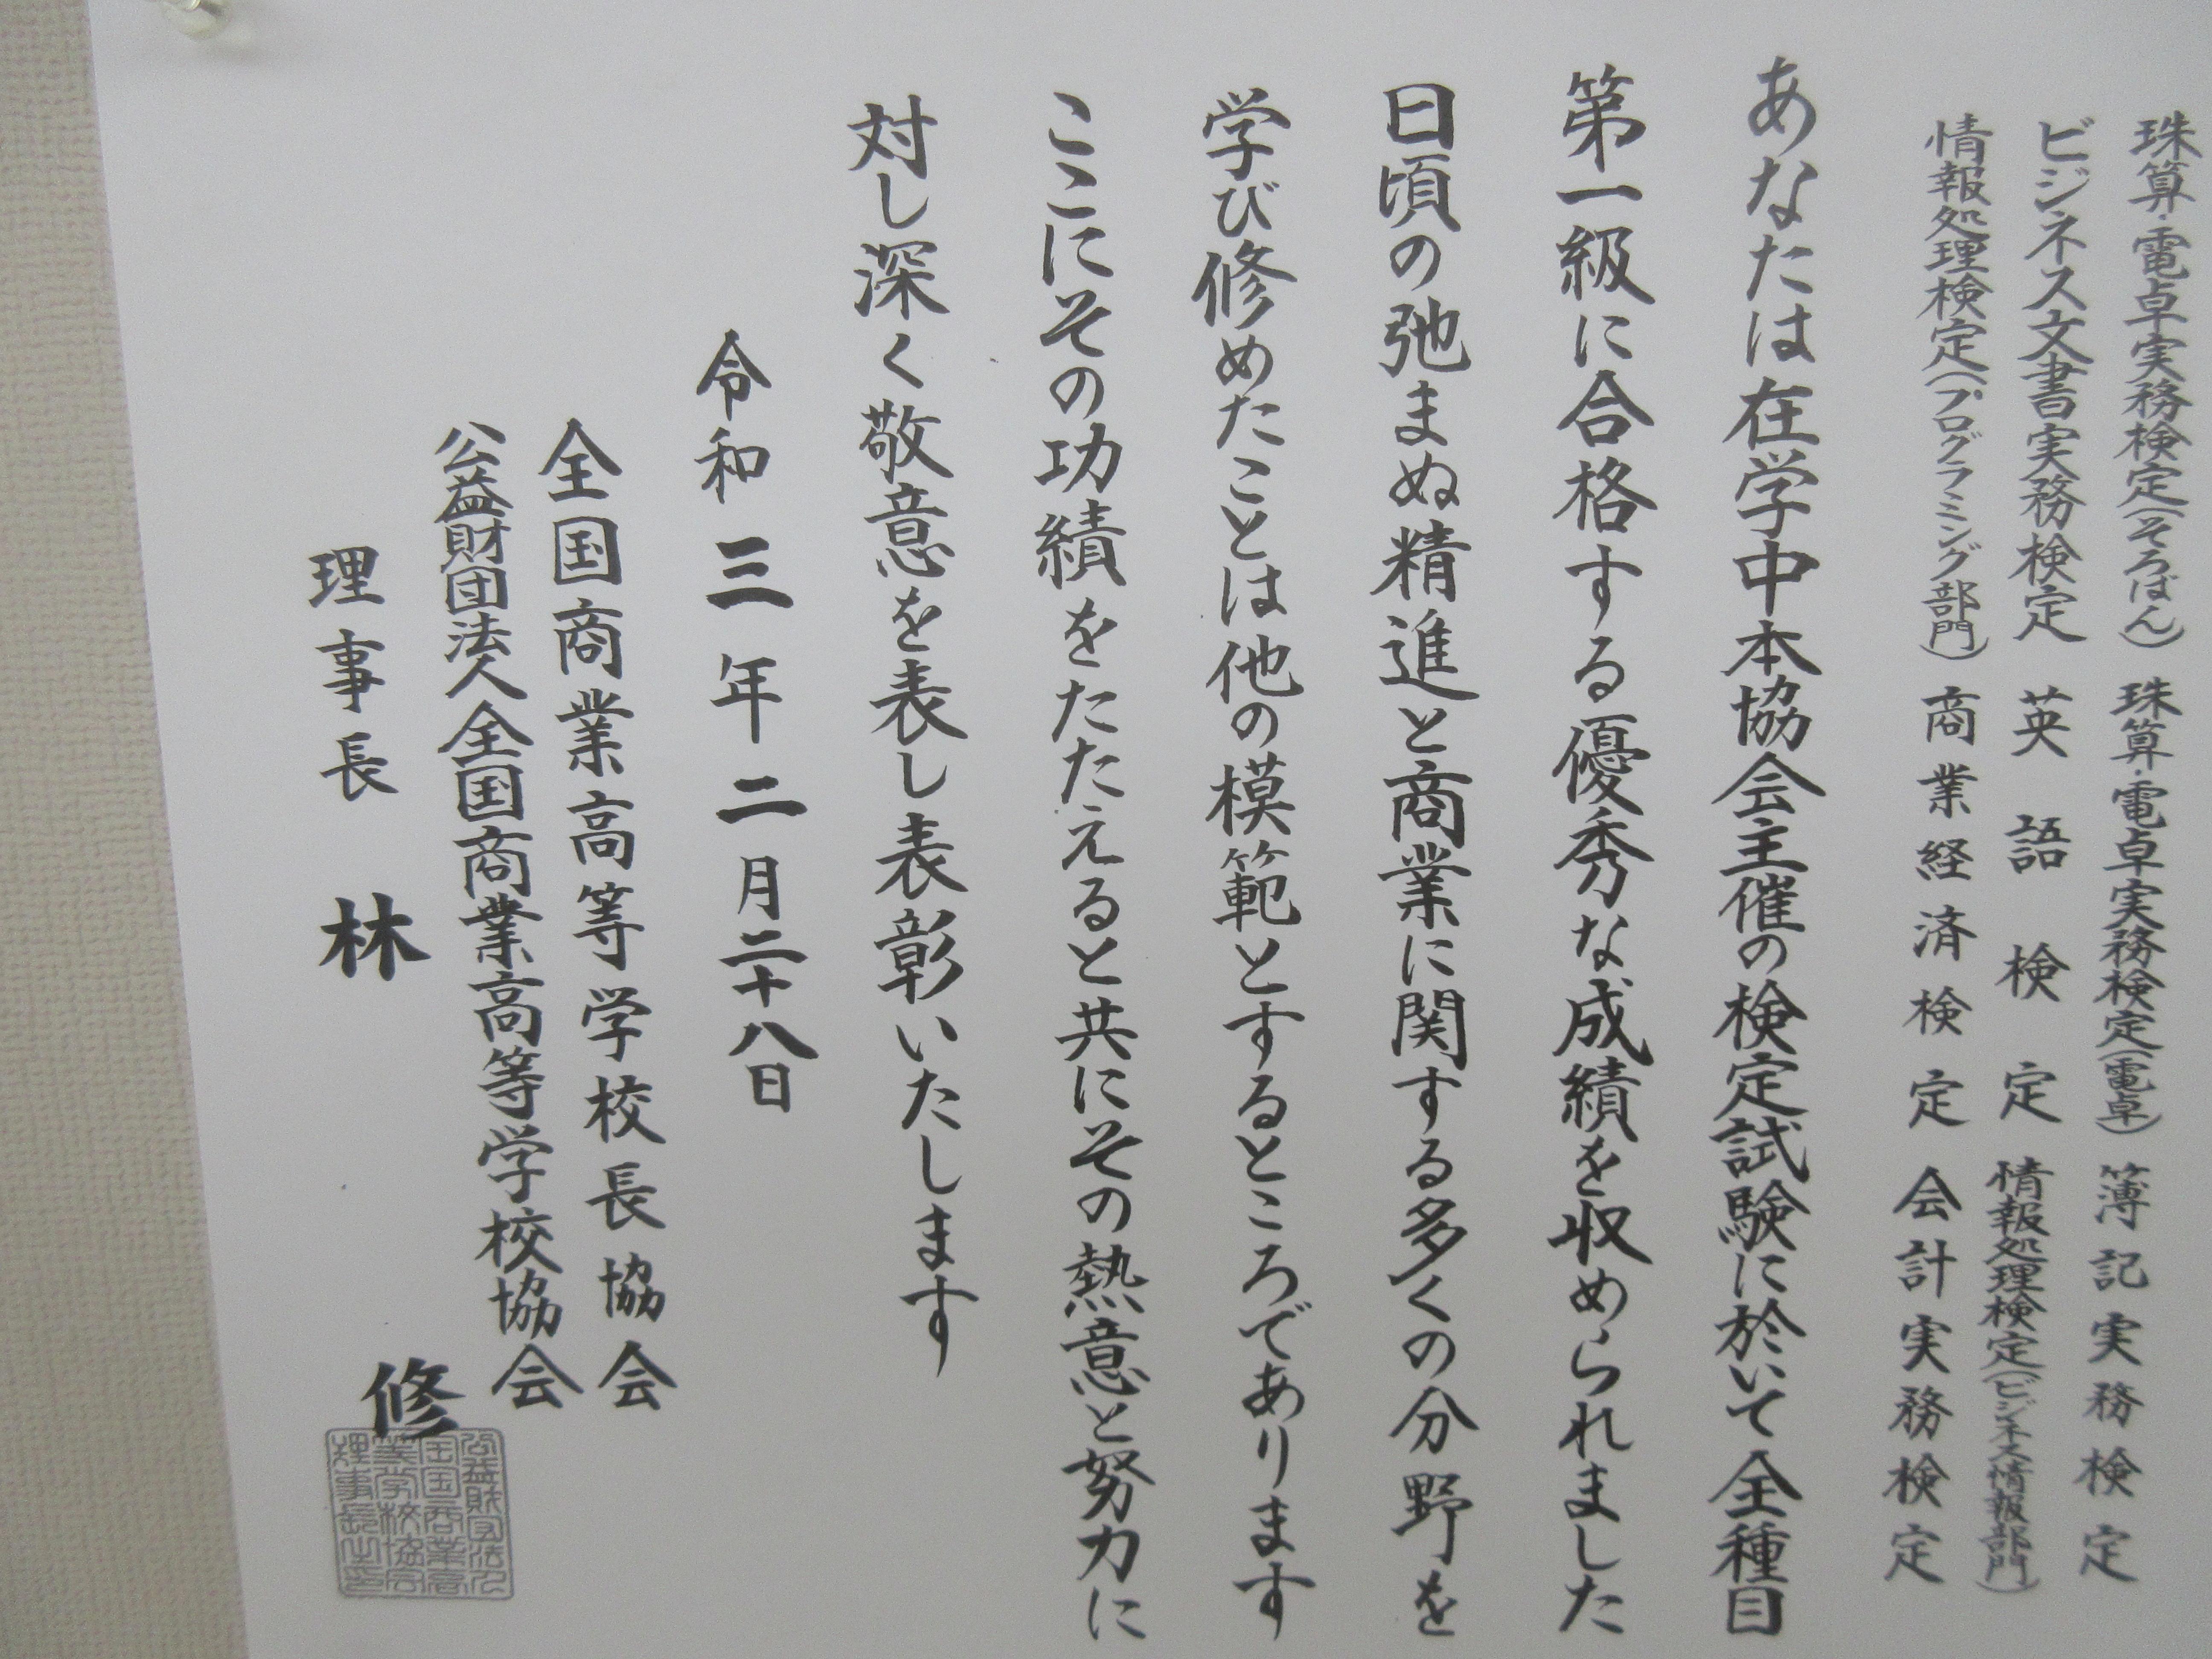 珠算・電卓実務検定(そろばん) 珠算・電卓実務検定(電卓) 簿記実務検定
ビジネス文書実務検定 英語検定 情報処理検定(ビジネス情報部門)
情報処理検定(プログラミング部門) 商業経済検定 会計実務検定
あなたは在学中本協会主催の検定試験に於いて全種目
第一級に合格する優秀な成績を収められました
日頃の弛まぬ精進と商業に関する多くの分野を
学び修めたことは他の模範とするところであります
ここにその功績をたたえると共にその熱意と努力に
対し深く敬意を表し表彰いたします
令和三年二月二十八日
全国商業高等学校長協会
公益財団法人全国商業高等学校協会
理事長 林 修
公益財団法人
全国商業高
等学校協会
理事長之印